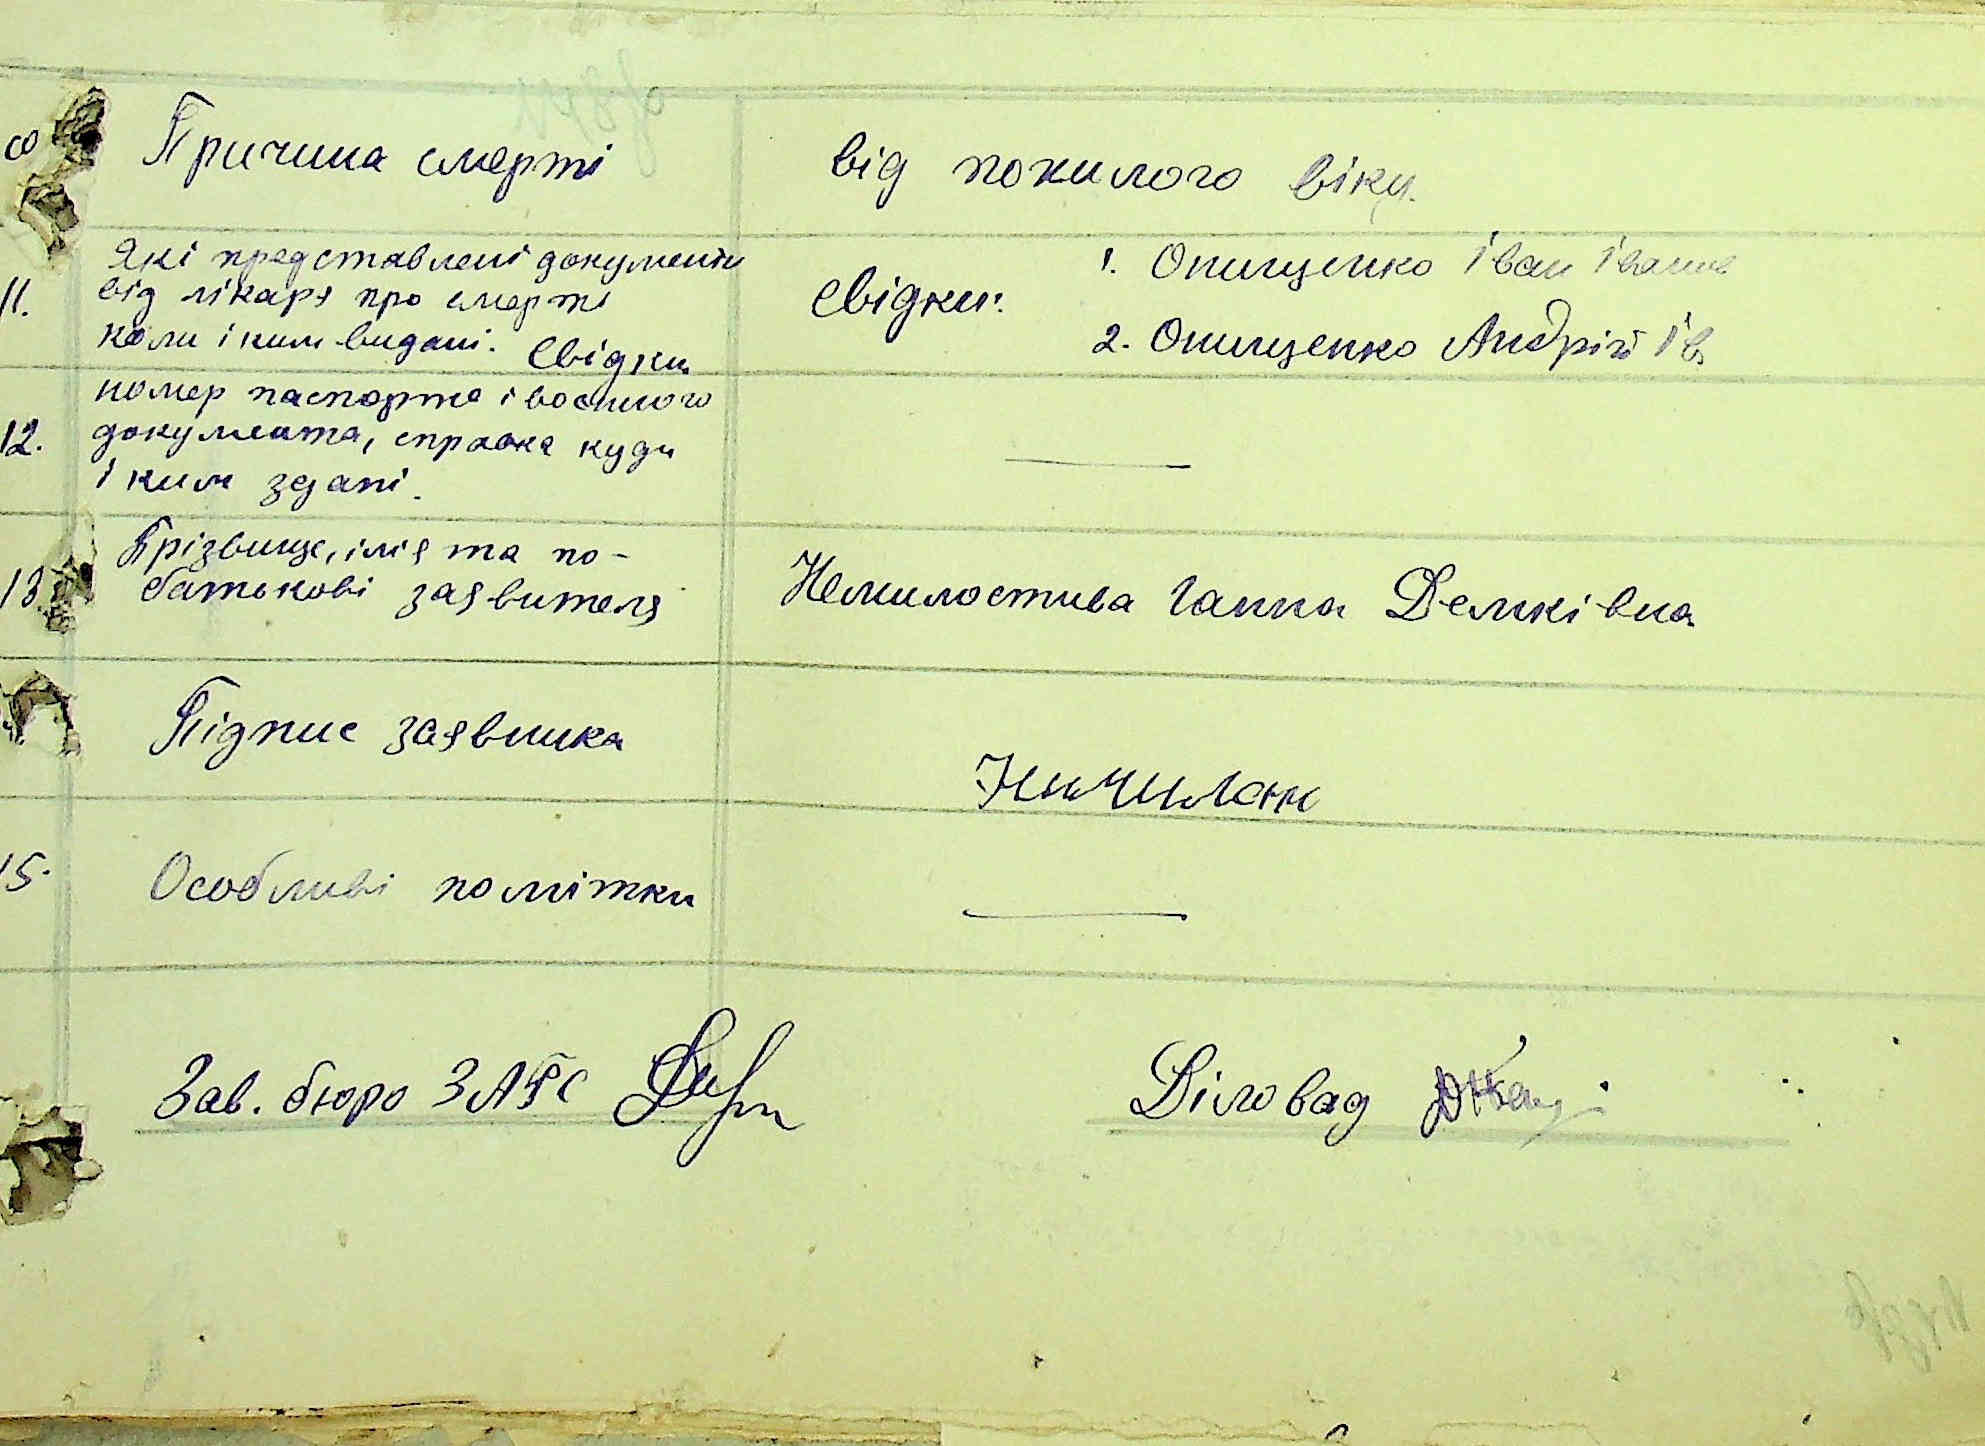 Причина смерті
від похилого віку.
11.
Які представлені документи
від лікаря про смерть
коли і ким видані. Свідки
Свідки:
1. Онищенко Іван Іванов
2. Онищенко Андрій Ів
12.
номер паспорта і воєнного
документа, справка куди
і ким здані.
13.
Прізвище, імія та по-
батькові заявителя
Немилостива Ганна Демківна
Підпис заявника
15.
Особливі помітки
Зав. бюро ЗАГС
Діловод